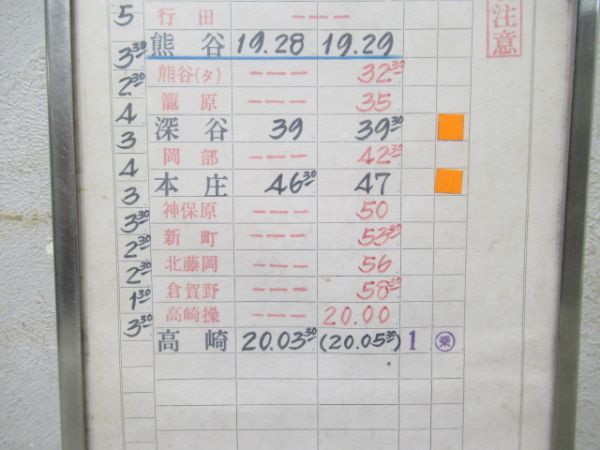 5 行田 ---
熊谷 19.28 19.29
3 30 熊谷(タ) --- 32 30
2 30 籠原 --- 35
4 深谷 39 39 30
3 岡部 --- 42 30
4 本庄 46 30 47
3 神保原 --- 50
3 30 新町 --- 53 30
2 30 北藤岡 --- 56
2 30 倉賀野 --- 58 30
1 30 高崎操 --- 20.00
3 30 高崎 20.03 30 (20.05 30) 1 乗
注意